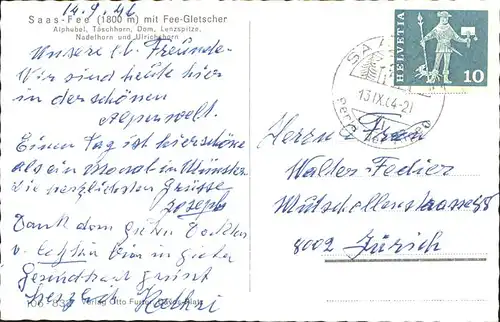 14.9.64
Saas-Fee (1800 m) mit Fee-Gletscher
Alphubel, Täschhorn, Dom, Lenzspitze,
Nadelhorn und Ulrichshorn
Unsere lb. Freunde
Wir sind heute hier
in der schönen
Alpenwelt.
Einen Tag ist hier schöner
als ein Monat in Münster
die herzlichsten Grüsse
Joseph
Dank dem guten
v. hier in guter
Gesundheit grüsst
herzlich Kathri
Verlag Otto Furter, Davos-Platz
HELVETIA
10
SAAS-FEE
13.IX.64-21
Herrn u Frau
Walter Fedier
Mutschellenstrasse 58
8002 Zürich